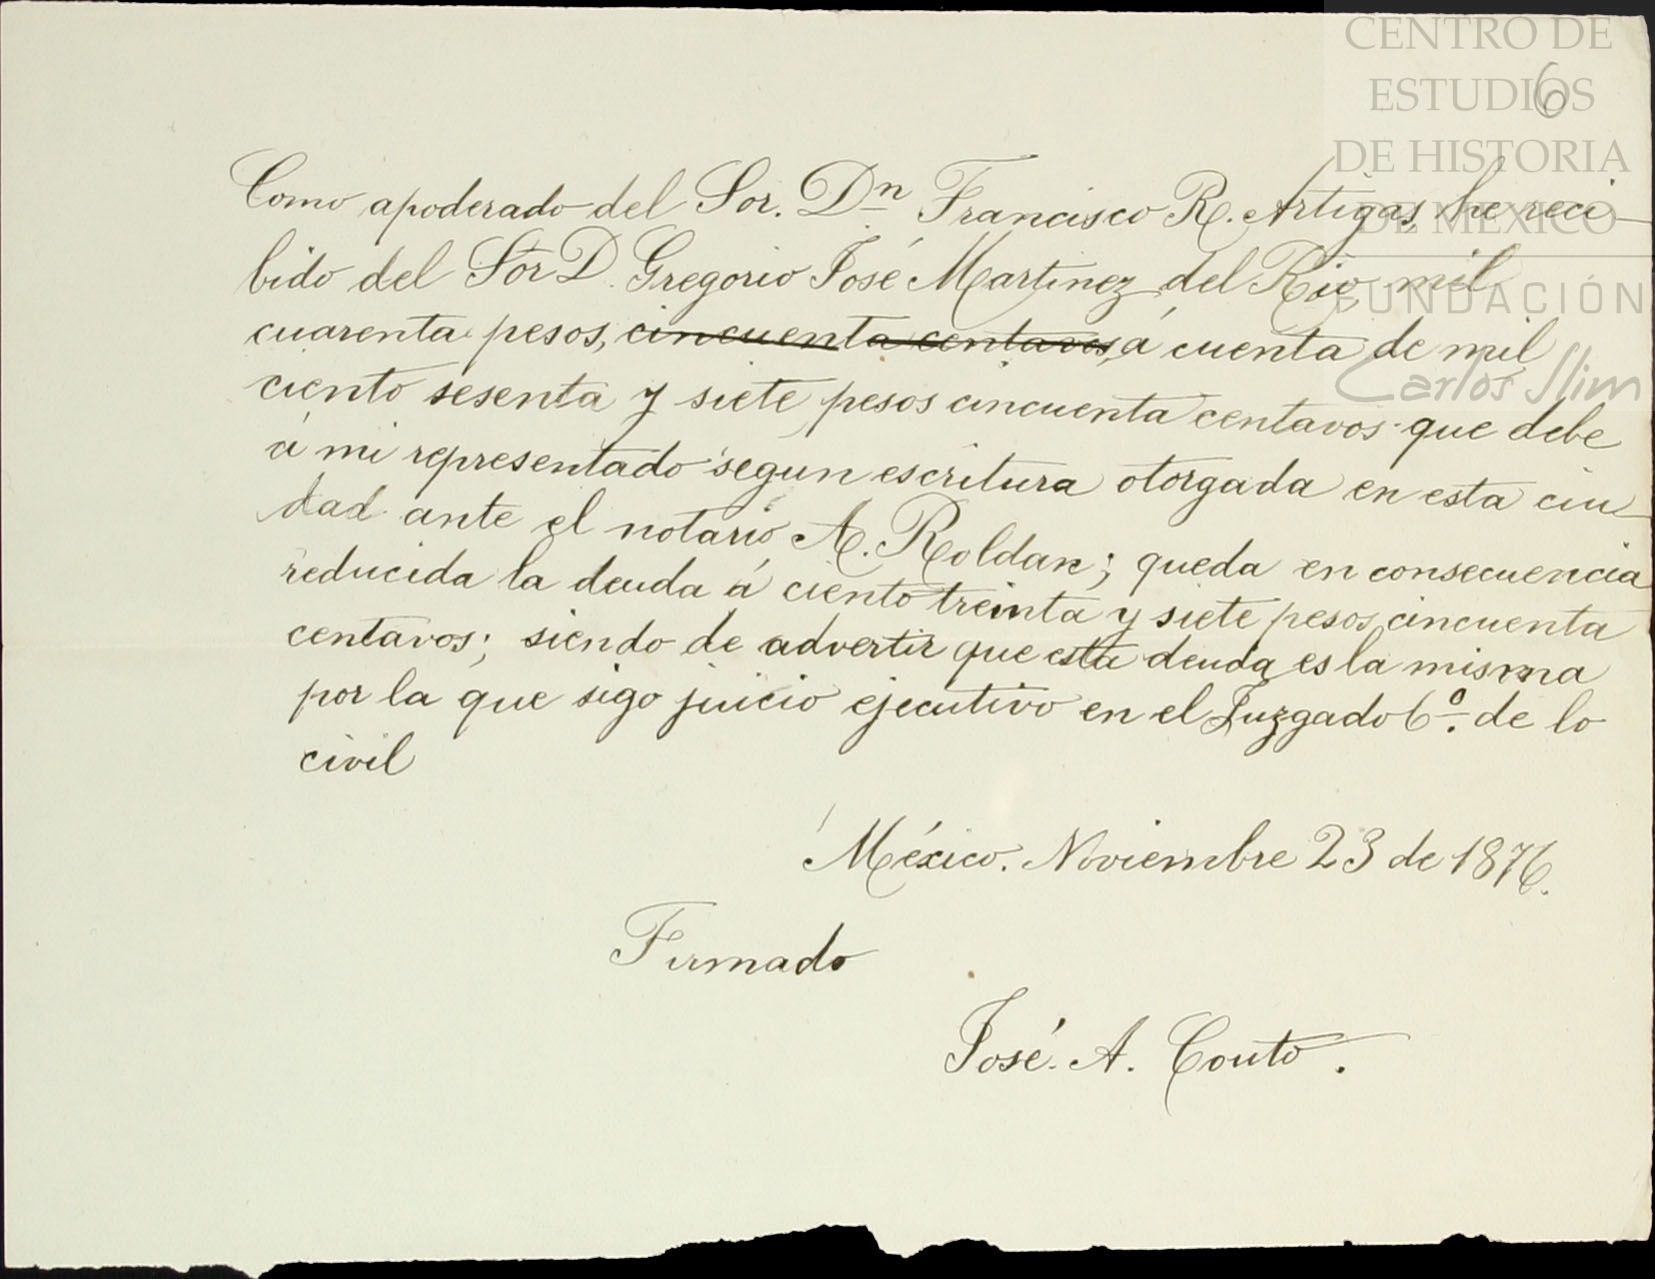 CENTRO DE
ESTUDIOS
DE HISTORIA
DE MEXICO
FUNDACIÓN
Carlos Slim
6
Como apoderado del Sor. Dn Francisco R. Artigas, he reci-
bido del Sor D. Gregorio José Martinez del Rio, mil
cuarenta pesos, cincuenta centavos, á cuenta de mil
ciento sesenta y siete pesos cincuenta centavos que debe
á mi representado segun escritura otorgada en esta ciu-
dad ante el notario A. Roldan; queda en consecuencia
reducida la deuda á ciento treinta y siete pesos, cincuenta
centavos; siendo de advertir que esta deuda es la misma
por la que sigo juicio ejecutivo en el Juzgado 6º. de lo
civil
México. Noviembre 23 de 1876.
Firmado
José. A. Couto.